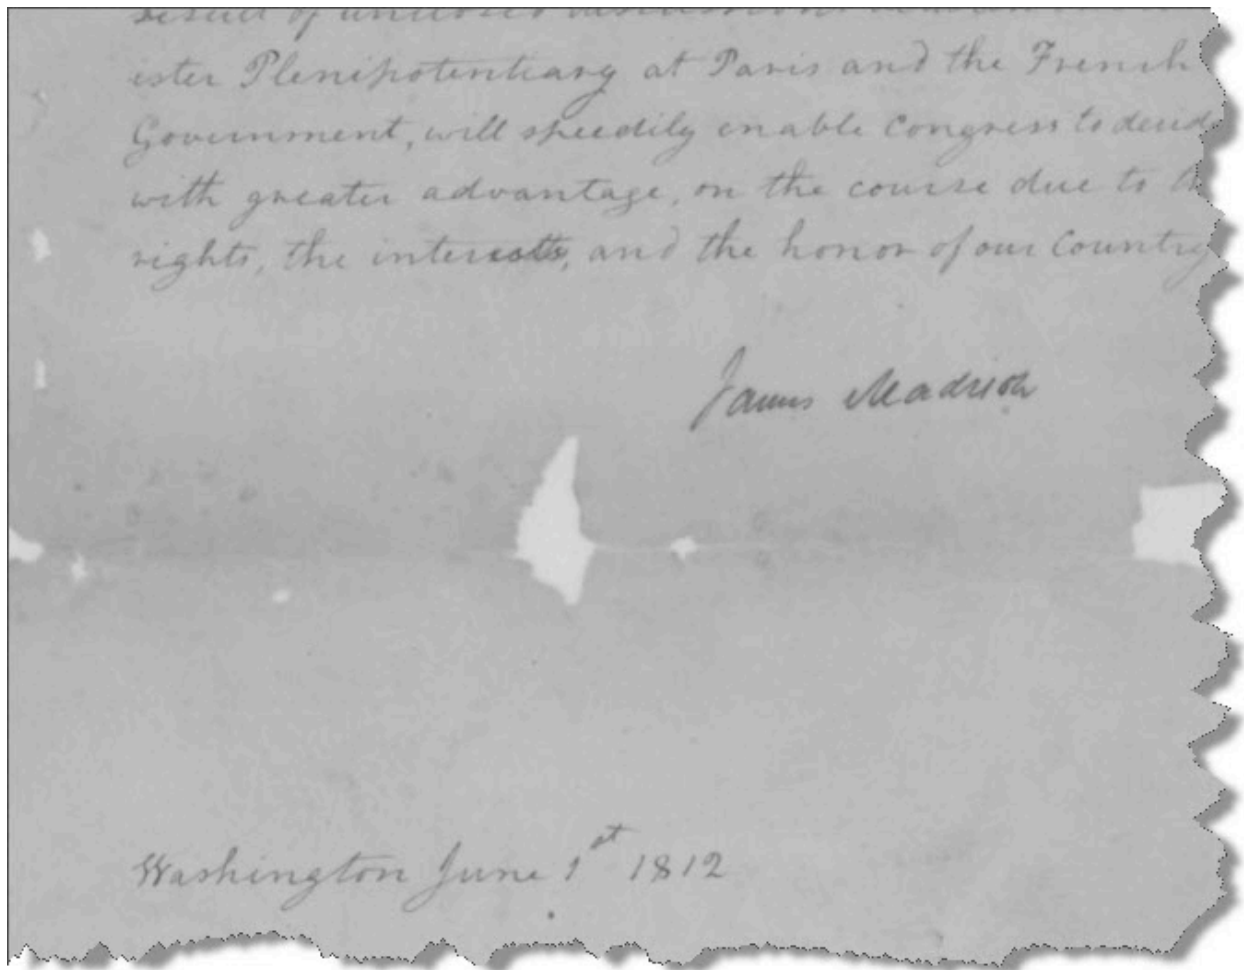 result of unclosed discussions
ister Plenipotentiary at Paris and the French
Government, will speedily enable Congress to decid
with greater advantage, on the course due to th
rights, the interests, and the honor of our Country
James Madison
Washington June 1st 1812